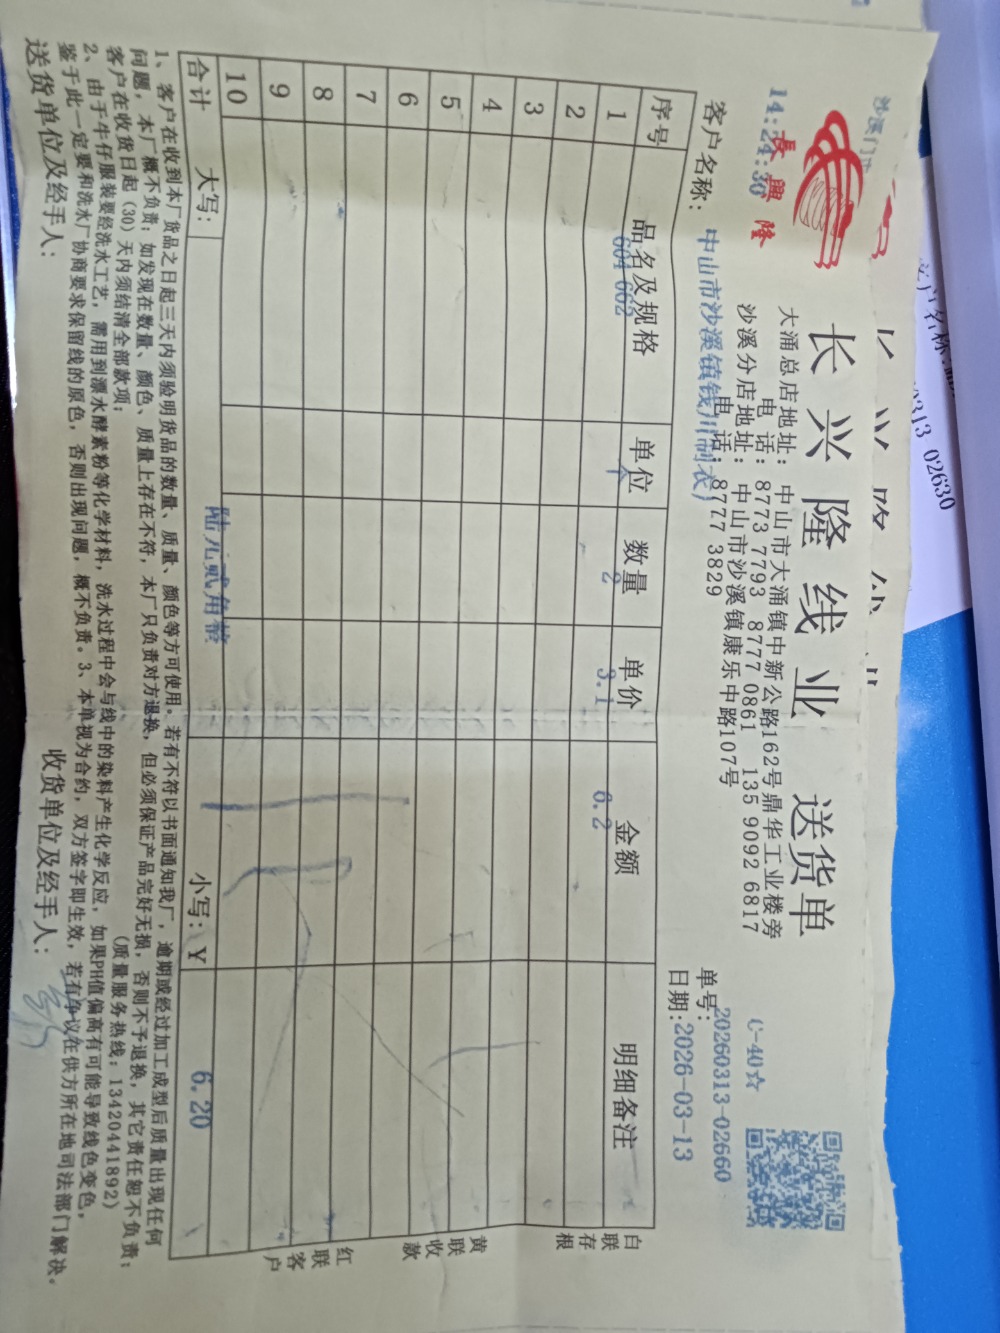 沙溪门
14:24:30
長興隆
长兴隆线业 送货单
大涌总店地址：中山市大涌镇中新公路162号鼎华工业楼旁
电 话：8773 7793 8777 0861 135 9092 6817
沙溪分店地址：中山市沙溪镇康乐中路107号
电 话：8777 3829
C-40☆
单号：20260313-02660
客户名称：中山市沙溪镇钱川制衣)
日期：2026-03-13
序号 品名及规格 单位 数量 单价 金额 明细备注
1 604 662 个 2 3.1 6.2
2
3
4
5
6
7
8
9
10
合计 大写：陆元贰角整 小写：¥ 6.20
白联存根
黄联收款
红联客户
1、客户在收到本厂货品之日起三天内须验明货品的数量、质量、颜色等方可使用。若有不符以书面通知我厂，逾期或经过加工成型后质量出现任何
问题，本厂概不负责；如发现在数量、颜色、质量上存在不符，本厂只负责对方退换，但必须保证产品完好无损，否则不予退换，其它责任恕不负责；
客户在收货日起（30）天内须结清全部款项； （质量服务热线：13420441892）
2、由于牛仔服装要经洗水工艺，需用到漂水酵素粉等化学材料，洗水过程中会与线中的染料产生化学反应，如果PH值偏高有可能导致线色变色，
鉴于此一定要和洗水厂协商要求保留线的原色，否则出现问题，概不负责。3、本单视为合约，双方签字即生效，若有争议在供方所在地司法部门解决。
送货单位及经手人： 收货单位及经手人：
客户名称:
0313 02630